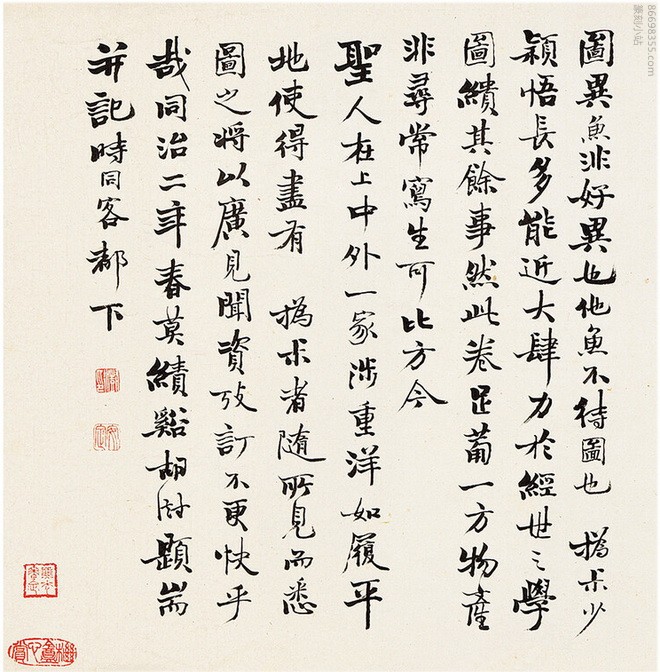 圖異魚非好異也他魚不待圖也撝叔少
穎悟長多能近大肆力於經世之學
圖繢其餘事然此卷足葡一方物產
非尋常寫生可比方今
聖人在上中外一家涉重洋如履平
地使得盡有撝叔者隨所見而悉
圖之將以廣見聞資攷訂不更快乎
哉同治二年春莫績谿胡澍題耑
并記時同客都下
86698355.com
篆刻小站